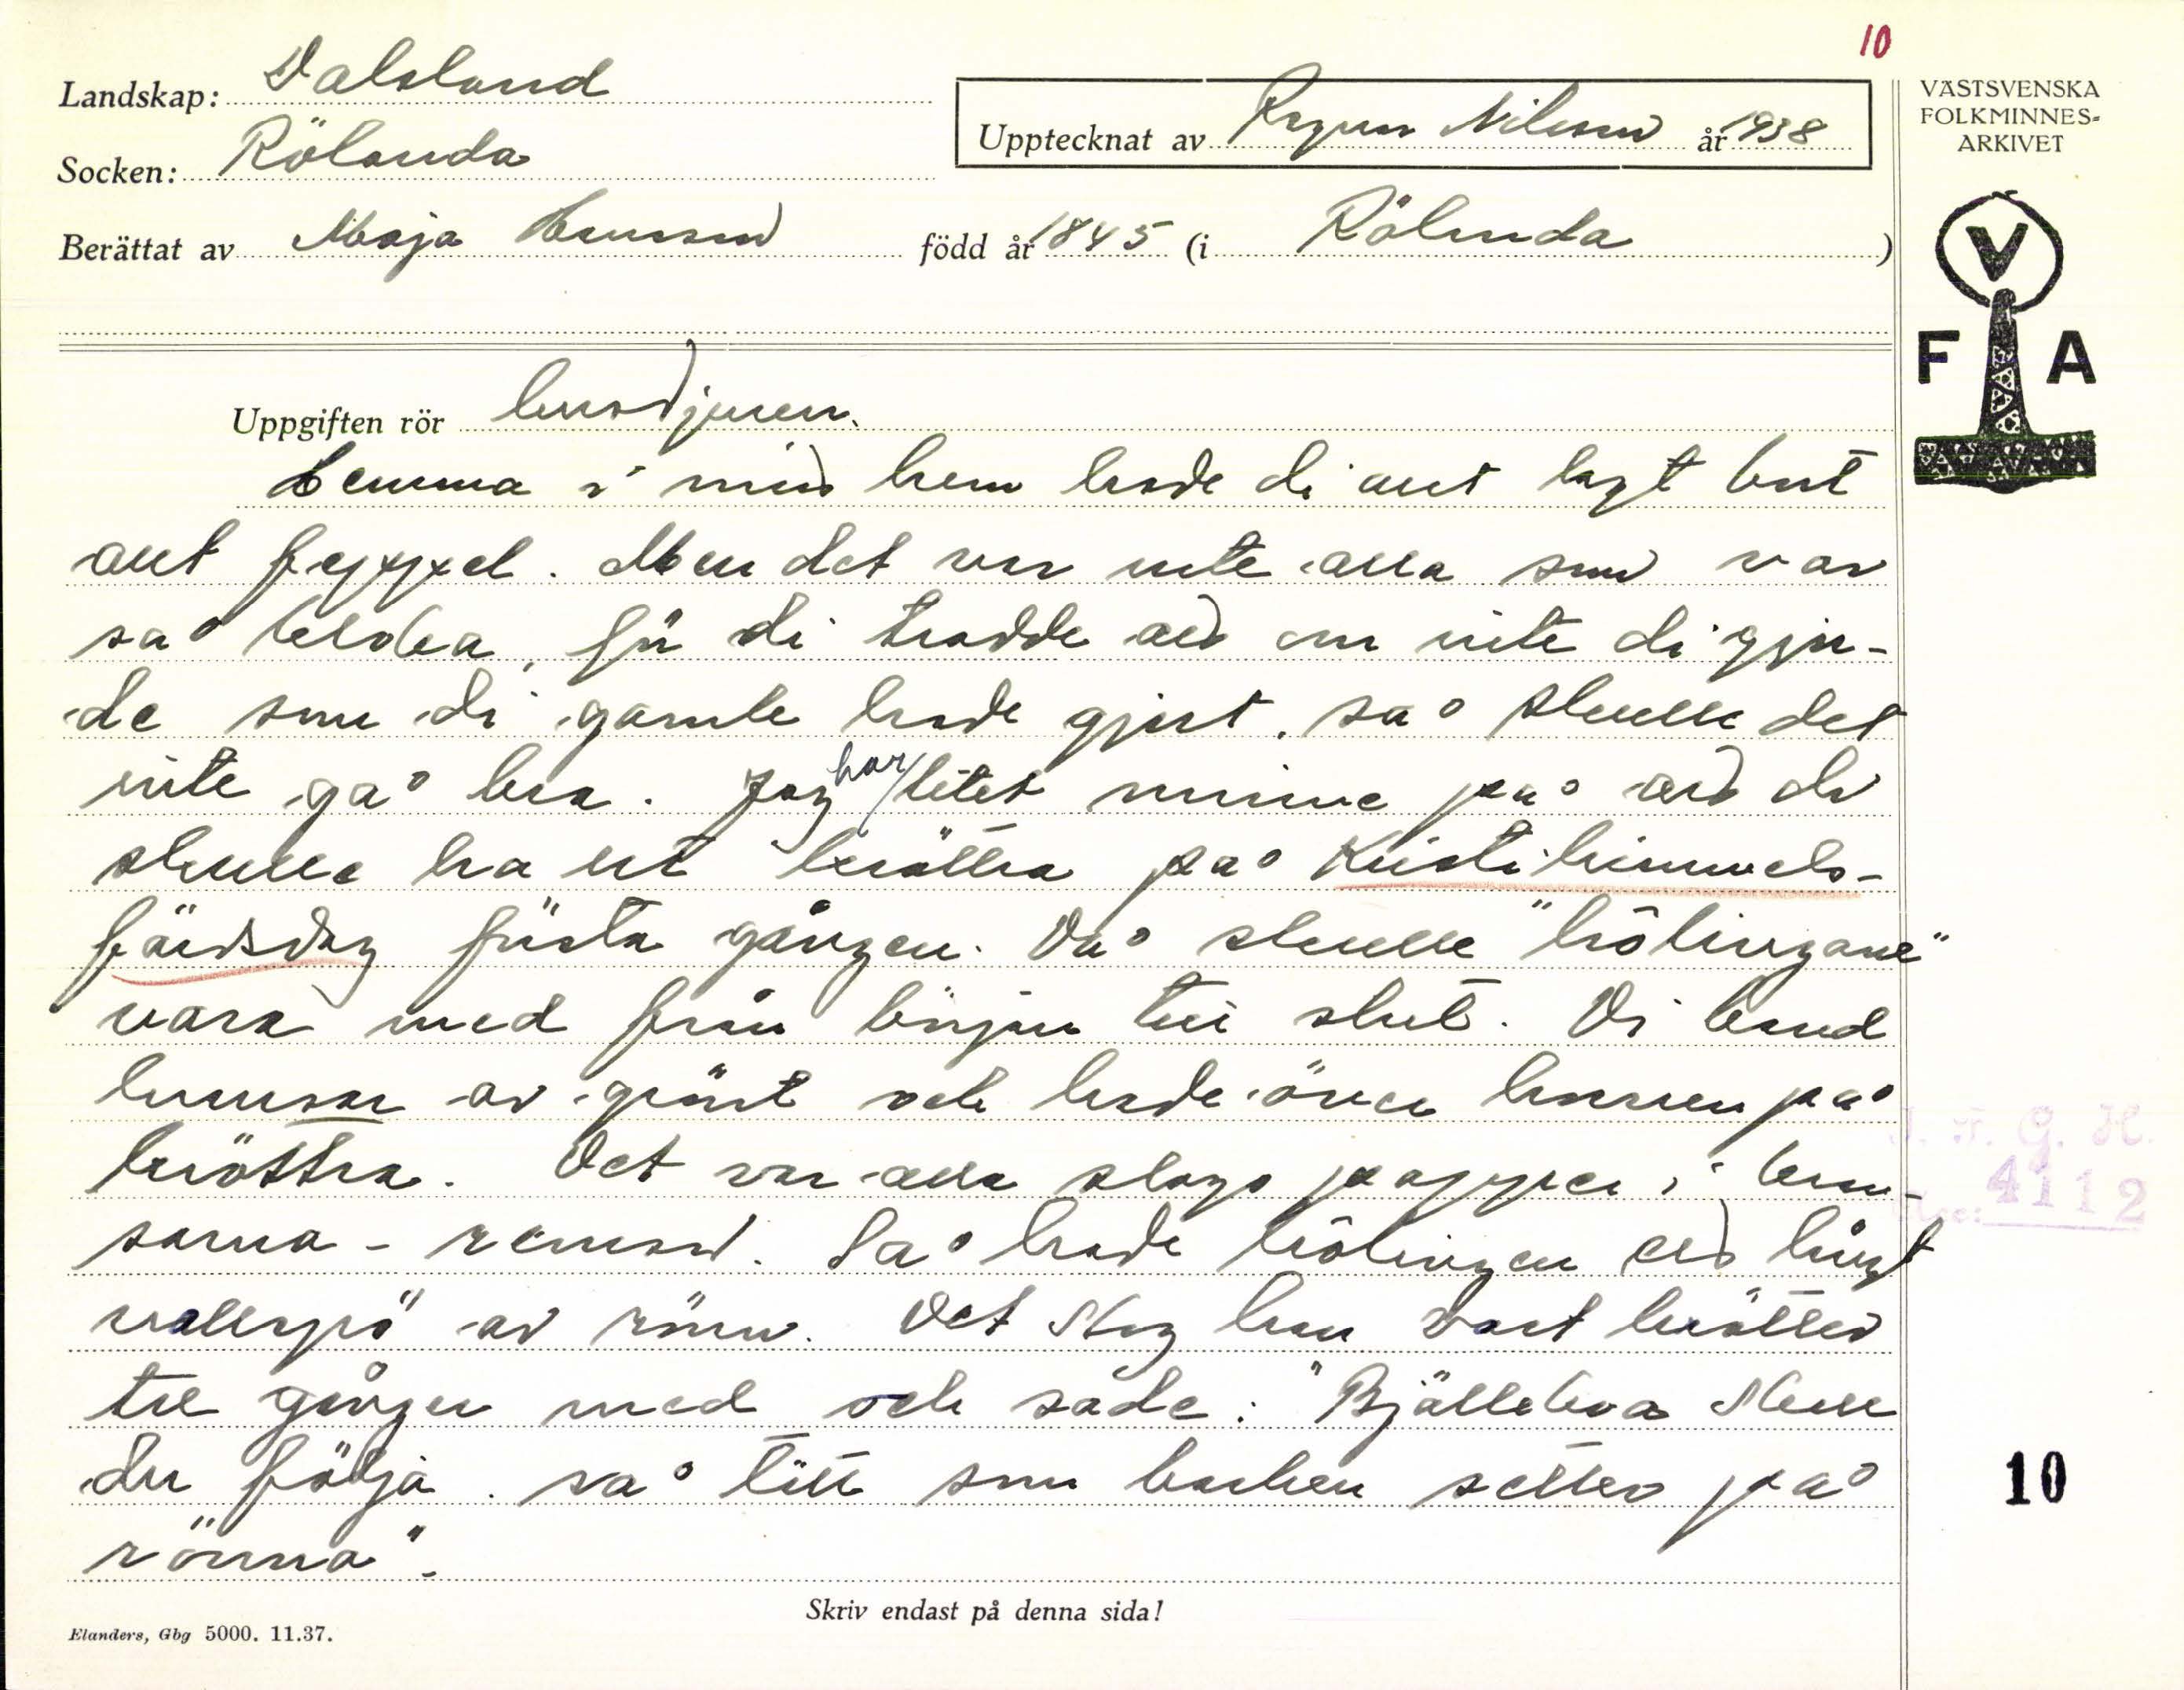 10
Landskap: Dalsland
Socken: Rölanda
Upptecknat av Ragnar Nilsson år 1938
Berättat av Maja Hansson född år 1845 (i Rölanda)
VÄSTSVENSKA
FOLKMINNES-
ARKIVET
V
F A
Uppgiften rör husdjuren.
Hemma i min hem hade di allt lagt bort
allt fejjxel. Men det var inte alla som var
så kloka, för di trodde att om inte di gjor-
de som di gamle hade gjort, så skulle det
inte gå bra. Jag har litet minne på att di
skulle ha ut kröttra på Kristi himmels-
färdsdag första gången. Då skulle "hölingane"
vara med från början till slut. Vi band
kransar av grönt och hade över hornen på
kröttra. Det var alla slags papper i kran-
sarna - remsor. Så hade hölingen ett långt
vallspö av rönn. Det slog han vart krötter
tre gånger med och sade: "Bjällekoa skall
du följa, så titt som barken setter på
rönna".
I. F. G. H.
Acc: 4112
10
Skriv endast på denna sida!
Elanders, Gbg 5000. 11.37.